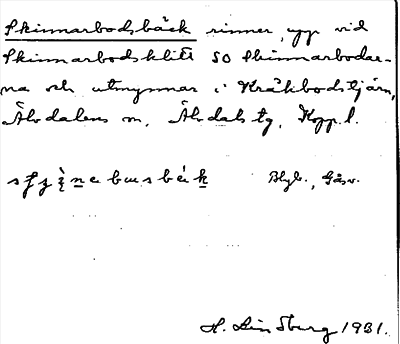 Skinnarbodsbäck rinner upp vid
Skinnarbodsklitt SO Skinnarbodar-
na och utmynnar i Kråkbodstjärn,
Älvdalens sn, Älvdals tg, Kopp. l.
Blyb., Gåsv.
H. Lindberg 1931.